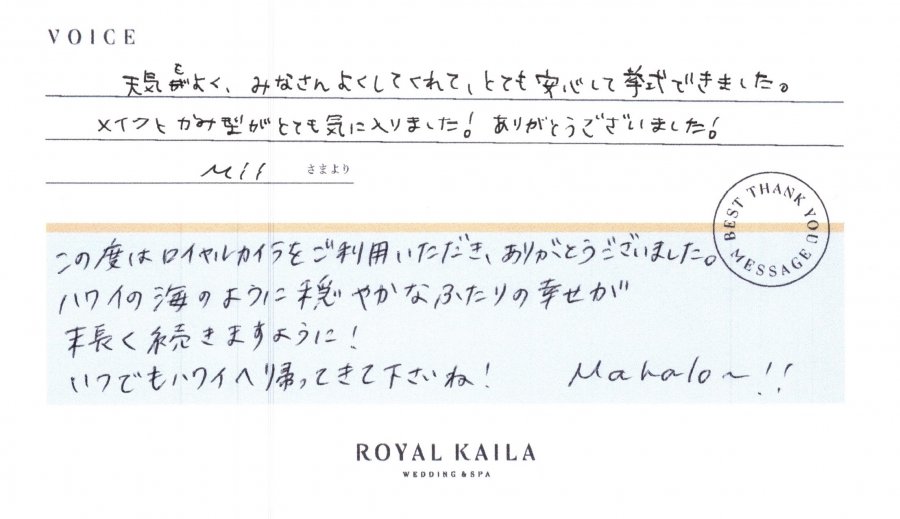 VOICE
天気もよく、みなさんよくしてくれて、とても安心して挙式できました。
メイクとかみ型がとても気に入りました! ありがとうございました!
Mii さまより
BEST THANK YOU MESSAGE
この度はロイヤルカイラをご利用いただき、ありがとうございました。
ハワイの海のように穏やかなふたりの幸せが
末長く続きますように!
いつでもハワイへ帰ってきて下さいね! Mahalo~!!
ROYAL KAILA
WEDDING & SPA